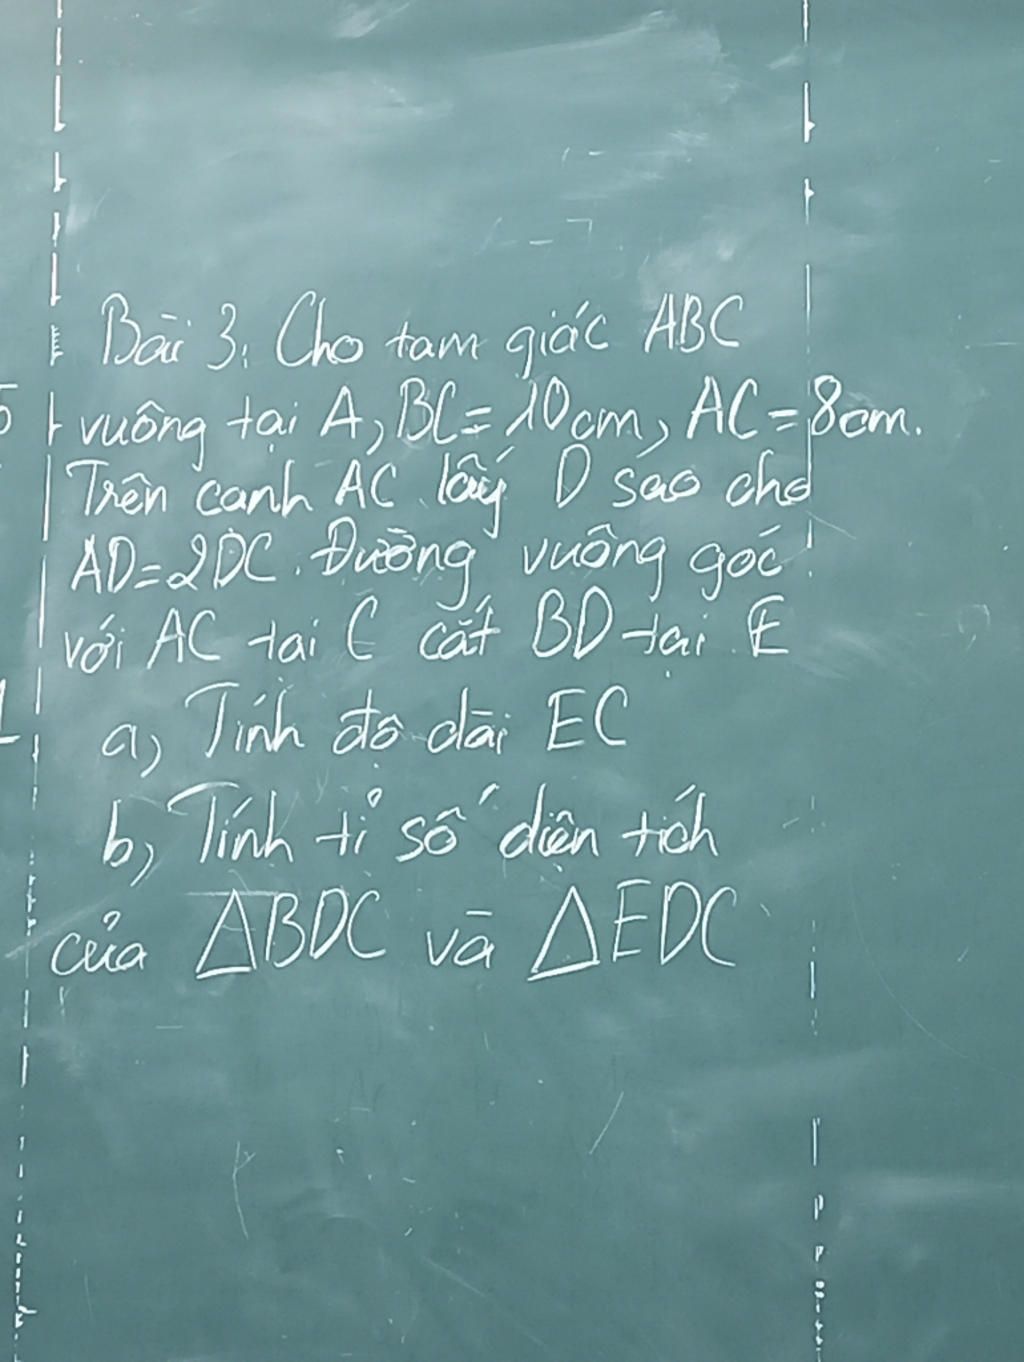 Bài 3: Cho tam giác ABC
vuông tại A, BC = 10cm, AC = 8cm.
Trên cạnh AC lấy D sao cho
AD = 2DC. Đường vuông góc
với AC tại C cắt BD tại E
a, Tính độ dài EC
b, Tính tỉ số diện tích
của ΔBDC và ΔEDC